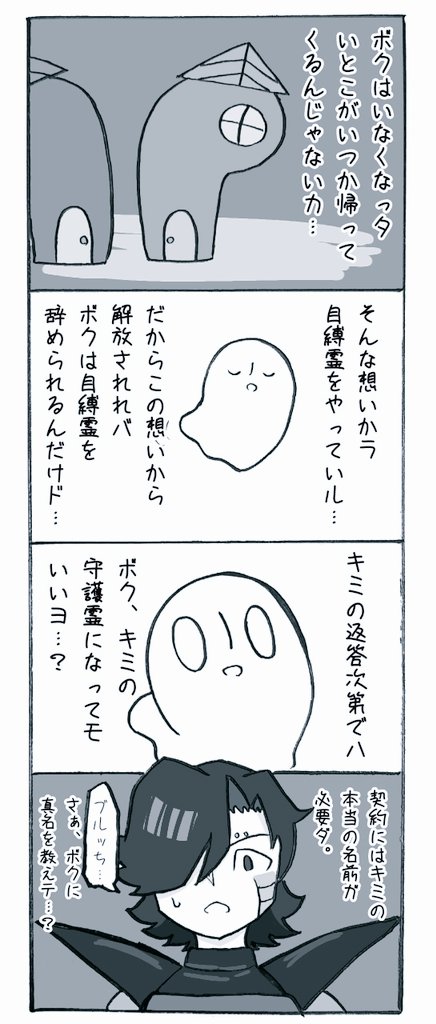 ボクはいなくなっタ
いとこがいつか帰って
くるんじゃないカ…
そんな想いかラ
自縛霊をやっていル…
だからこの想いから
解放されれバ
ボクは自縛霊を
辞められるんだけド…
キミの返答次第でハ
ボク、キミの
守護霊になってモ
いいヨ…？
契約にはキミの
本当の名前が
必要ダ。
ブルッち…
さあ、ボクに
真名を教えテ…？